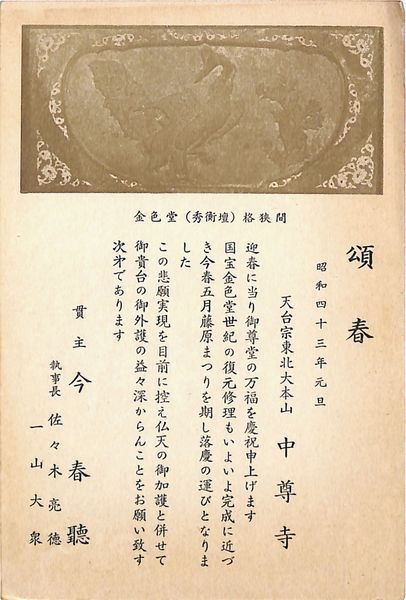 金色堂（秀衡壇）格狭間
頌春
昭和四十三年元旦
天台宗東北大本山 中尊寺
迎春に当り御尊堂の万福を慶祝申上げます
国宝金色堂世紀の復元修理もいよいよ完成に近づ
き今春五月藤原まつりを期し落慶の運びとなりま
した
この悲願実現を目前に控え仏天の御加護と併せて
御貴台の御外護の益々深からんことをお願い致す
次第であります
貫主 今春聽
執事長 佐々木亮德
一山大衆